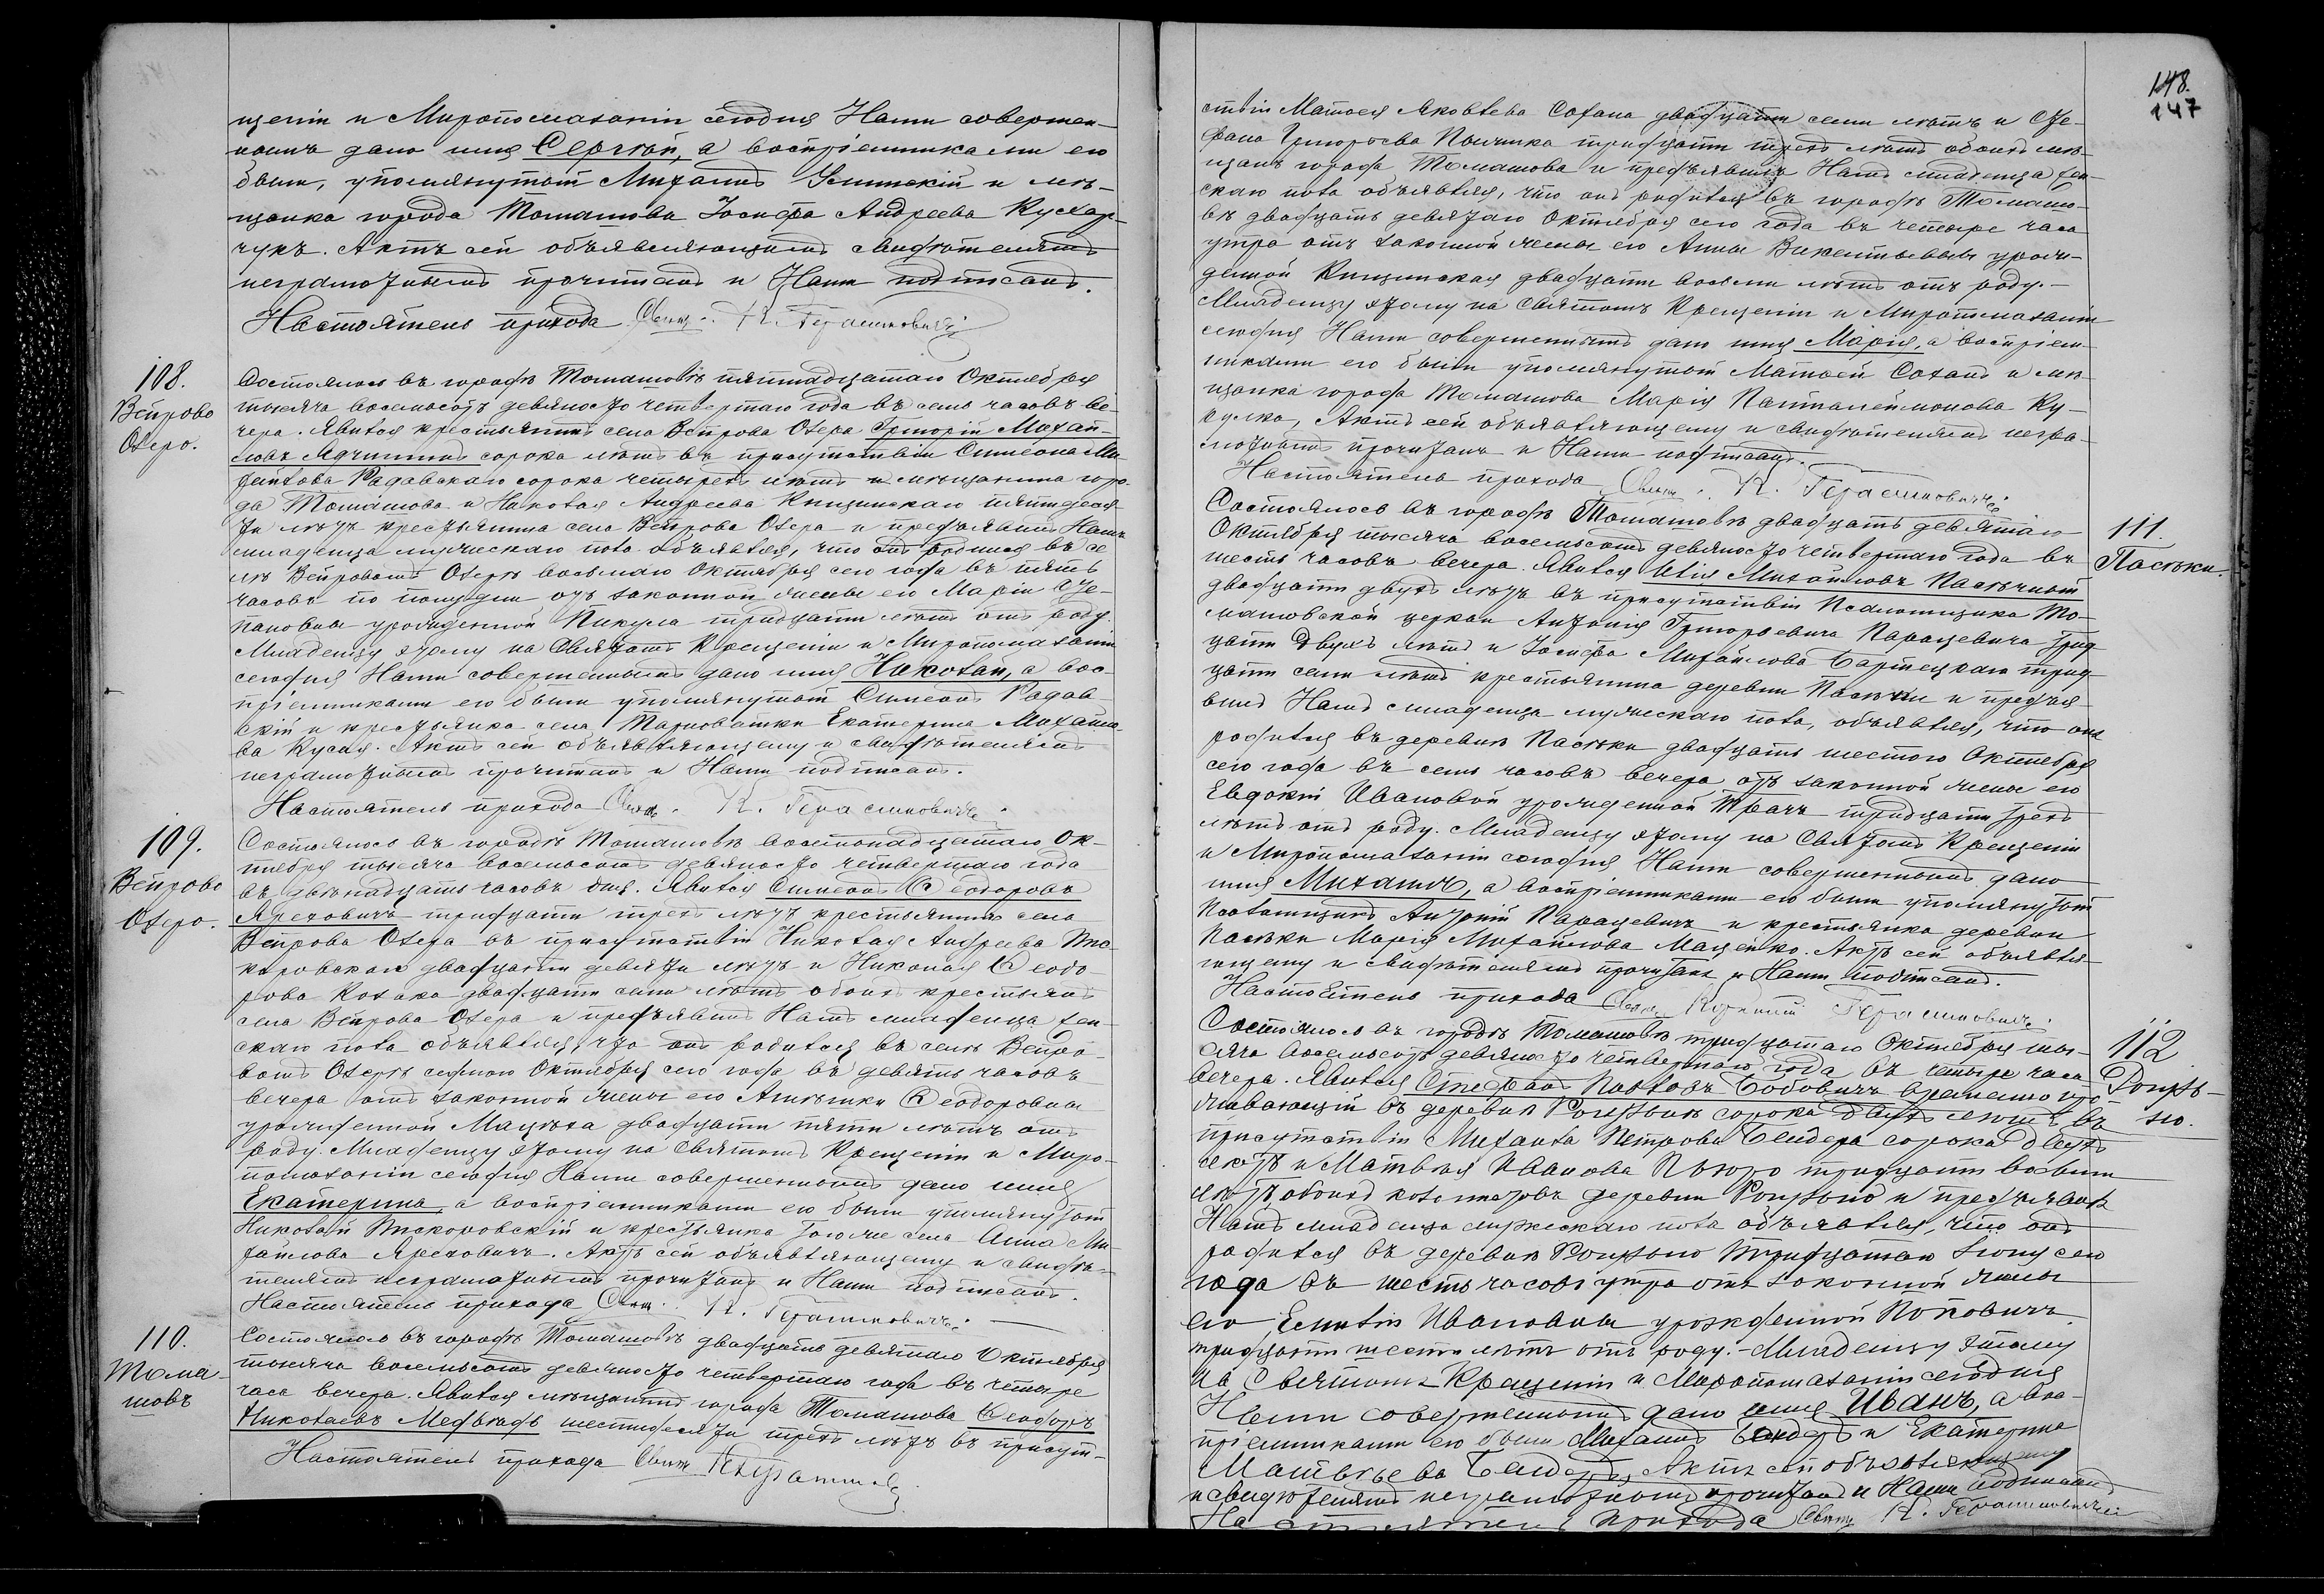 щеніи и Миропомазаніи сегодня Нами совершен-
номъ дано имя Сергѣй, а воспріемниками его
были, упомянутый Михаилъ и мѣ-
щанка города Томашова Іосифа Андреева Кухар-
чукъ. Актъ сей объявляющимъ свидѣтелямъ
неграмотнымъ прочитанъ и Нами подписанъ.
Настоятель прихода Свящ. К. Герасимовичъ
108.
Вепрово
Озеро.
Состоялось въ городѣ Томашовѣ пятнадцатаго Октября
тысяча восемьсотъ девяносто четвертаго года въ семь часовъ ве-
чера. Явился крестьянинъ села Вепрова Озера Григорій Михай-
ловъ сорока лѣтъ въ присутствіи Симеона Ми-
хайлова Радавскаго сорока четырехъ лѣтъ и мѣщанина горо-
да Томашова и Николая Андреева Кницинскаго пятидеся-
ти лѣтъ крестьянина села Вепрова Озера и предъявилъ Намъ
младенца мужескаго пола объявляя, что онъ родился въ се-
лѣ Вепровомъ Озерѣ восьмаго Октября сего года въ пять
часовъ по полудни отъ законной жены его Маріи Сте-
пановны урожденной Пикула тридцати лѣтъ отъ роду.
Младенцу этому на Святомъ Крещеніи и Миропомазаніи
сегодня Нами совершенномъ дано имя Николай, а вос-
пріемниками его были упомянутый Симеонъ Радав-
скій и крестьянка села Тарноватки Екатерина Михайло-
ва Кусая. Актъ сей объявляющему и свидѣтелямъ
неграмотнымъ прочитанъ и Нами подписанъ.
Настоятель прихода Свящ. К. Герасимовичъ.
109.
Вепрово
Озеро.
Состоялось въ городѣ Томашовѣ восемнадцатаго Ок-
тября тысяча восемьсотъ девяносто четвертаго года
въ двѣнадцать часовъ дня. Явился Симеонъ Ѳеодоровъ
Яреховичъ тридцати трехъ лѣтъ крестьянинъ села
Вепрова Озера въ присутствіи Николая Андреева
двадцати девяти лѣтъ и Николая Ѳеодо-
рова Козака двадцати семи лѣтъ обоихъ крестьянъ
села Вепрова Озера и предъявилъ Намъ младенца жен-
скаго пола объявляя, что онъ родился въ селѣ Вепро-
вомъ Озерѣ седмаго Октября сего года въ девять часовъ
вечера отъ законной жены его Ѳеодоровны
урожденной двадцати пяти лѣтъ отъ
роду. Младенцу этому на Святомъ Крещеніи и Миро-
помазаніи сегодня Нами совершенномъ дано имя
Екатерина, а воспріемниками его были упомянутый
Николай и крестьянка того же села Анна Ми-
хайлова Яреховичъ. Актъ сей объявляющему и свидѣ-
телямъ неграмотнымъ прочитанъ и Нами подписанъ.
Настоятель прихода Свящ. К. Герасимовичъ.
110.
Тома-
шовъ
Состоялось въ городѣ Томашовѣ двадцать девятаго Октября
тысяча восемьсотъ девяносто четвертаго года въ четыре
часа вечера. Явился мѣщанинъ города Томашова Ѳеодоръ
Николаевъ Медвѣдь шестидесяти трехъ лѣтъ въ присут-
Настоятель прихода Свящ.
148.
147
ствіи Матѳея Яковлева Сохана двадцати семи лѣтъ и Сте-
фана Григорьева тридцати трехъ лѣтъ обоихъ мѣ-
щанъ города Томашова и предъявилъ Намъ младенца жен-
скаго пола объявляя, что онъ родился въ городѣ Томашо-
въ двадцать девятаго Октября сего года въ четыре часа
утра отъ законной жены его Анны Викентьевны урож-
денной Кницинская двадцати восьми лѣтъ отъ роду.-
Младенцу этому на Святомъ Крещеніи и Миропомазаніи
сегодня Нами совершенномъ дано имя Марія, а воспріем-
никами его были упомянутый Матѳей Соханъ и мѣ-
щанка города Томашова Марія Панталеймонова Ку-
Актъ сей объявляющему и свидѣтелямъ негра-
мотнымъ прочитанъ и Нами подписанъ.
Настоятель прихода Свящ. К. Герасимовичъ.
111.
Пасѣки.
Состоялось въ городѣ Томашовѣ двадцать девятаго
Октября тысяча восемьсотъ девяносто четвертаго года въ
шесть часовъ вечера. Явился Илія Михайловъ Пасѣчный
двадцати двухъ лѣтъ въ присутствіи Псаломщика То-
машовской церкви Антонія Григорьевича Парацевича трид-
цати двухъ лѣтъ и Іосифа Михайлова Бартецкаго трид-
цати семи лѣтъ крестьянина деревни Пасѣки и предъя-
вилъ Намъ младенца мужескаго пола, объявляя, что онъ
родился въ деревнѣ Пасѣки двадцать шестого Октября
сего года въ семь часовъ вечера отъ законной жены его
Евдокіи Ивановой урожденной Ткачъ тридцати трехъ
лѣтъ отъ роду. Младенцу этому на Святомъ Крещеніи
и Миропомазаніи сегодня Нами совершенномъ дано
имя Михаилъ, а воспріемниками его были упомянутый
Псаломщикъ Антоній Парацевичъ и крестьянка деревни
Пасѣки Марія Михайлова Мацейко. Актъ сей объявля-
ющему и свидѣтелямъ прочитанъ и Нами подписанъ.
Настоятель прихода Свящ. Герасимовичъ.
112
Рогузь-
но.
Состоялось въ городѣ Томашовѣ тридцатаго Октября ты-
сяча восемьсотъ девяносто четвертаго года въ четыре часа
вечера. Явился Стефанъ Павловъ Бобовичъ временно про-
живающій въ деревнѣ сорока двухъ лѣтъ въ
присутствіи Михаила Петрова Бендера сорока двухъ
лѣтъ и Матвѣя Иванова тридцати восьми
лѣтъ обоихъ колонистовъ деревни и предъявилъ
Намъ младенца мужескаго пола объявляя, что онъ
родился въ деревнѣ тридцатаго Іюня сего
года въ шесть часовъ утра отъ законной жены
его Емиліи Ивановны урожденной Поповичъ
тридцати шести лѣтъ отъ роду.- Младенцу этому
на Святомъ Крещеніи и Миропомазаніи сегодня
Нами совершенномъ дано имя Иванъ, а вос-
пріемниками его были Михаилъ Бендеръ и Екатерина
Матвѣева Бендеръ, Актъ сей объявляющему
и свидѣтелямъ неграмотнымъ прочитанъ и Нами подписанъ
Настоятель прихода Свящ. К. Герасимовичъ